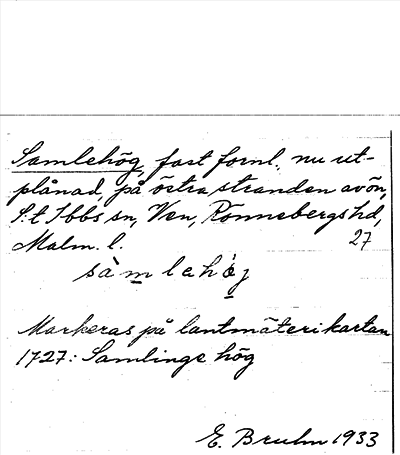 Samlehög, fast fornl., nu ut-
plånad, på östra stranden av ön,
S:t Ibbs sn, Ven, Rönnebergs hd,
Malm. l. 27
sàmlehö́j
Markeras på lantmäterikartan
1727: Samlinge hög
E. Bruhn 1933